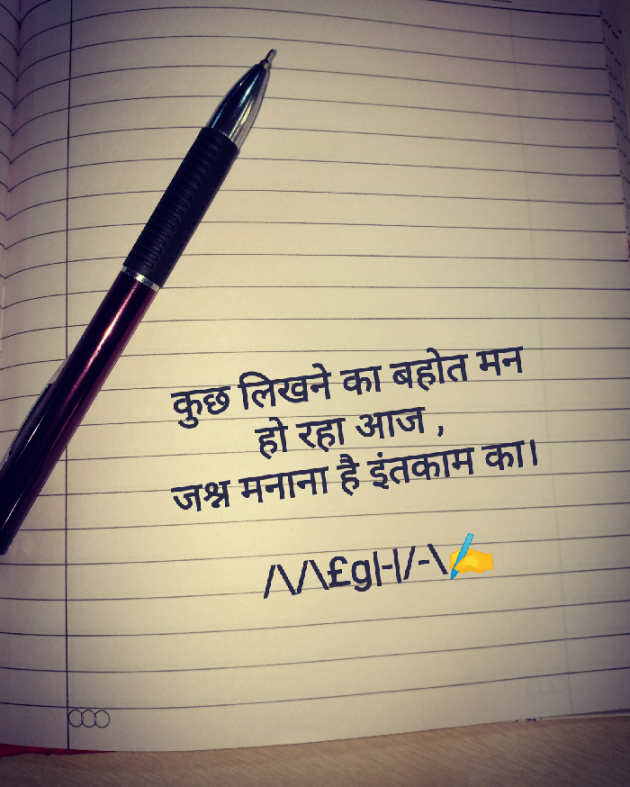 कुछ लिखने का बहोत मन
हो रहा आज ,
जश्न मनाना है इंतकाम का।
/\/\£g|-|/-\✍️